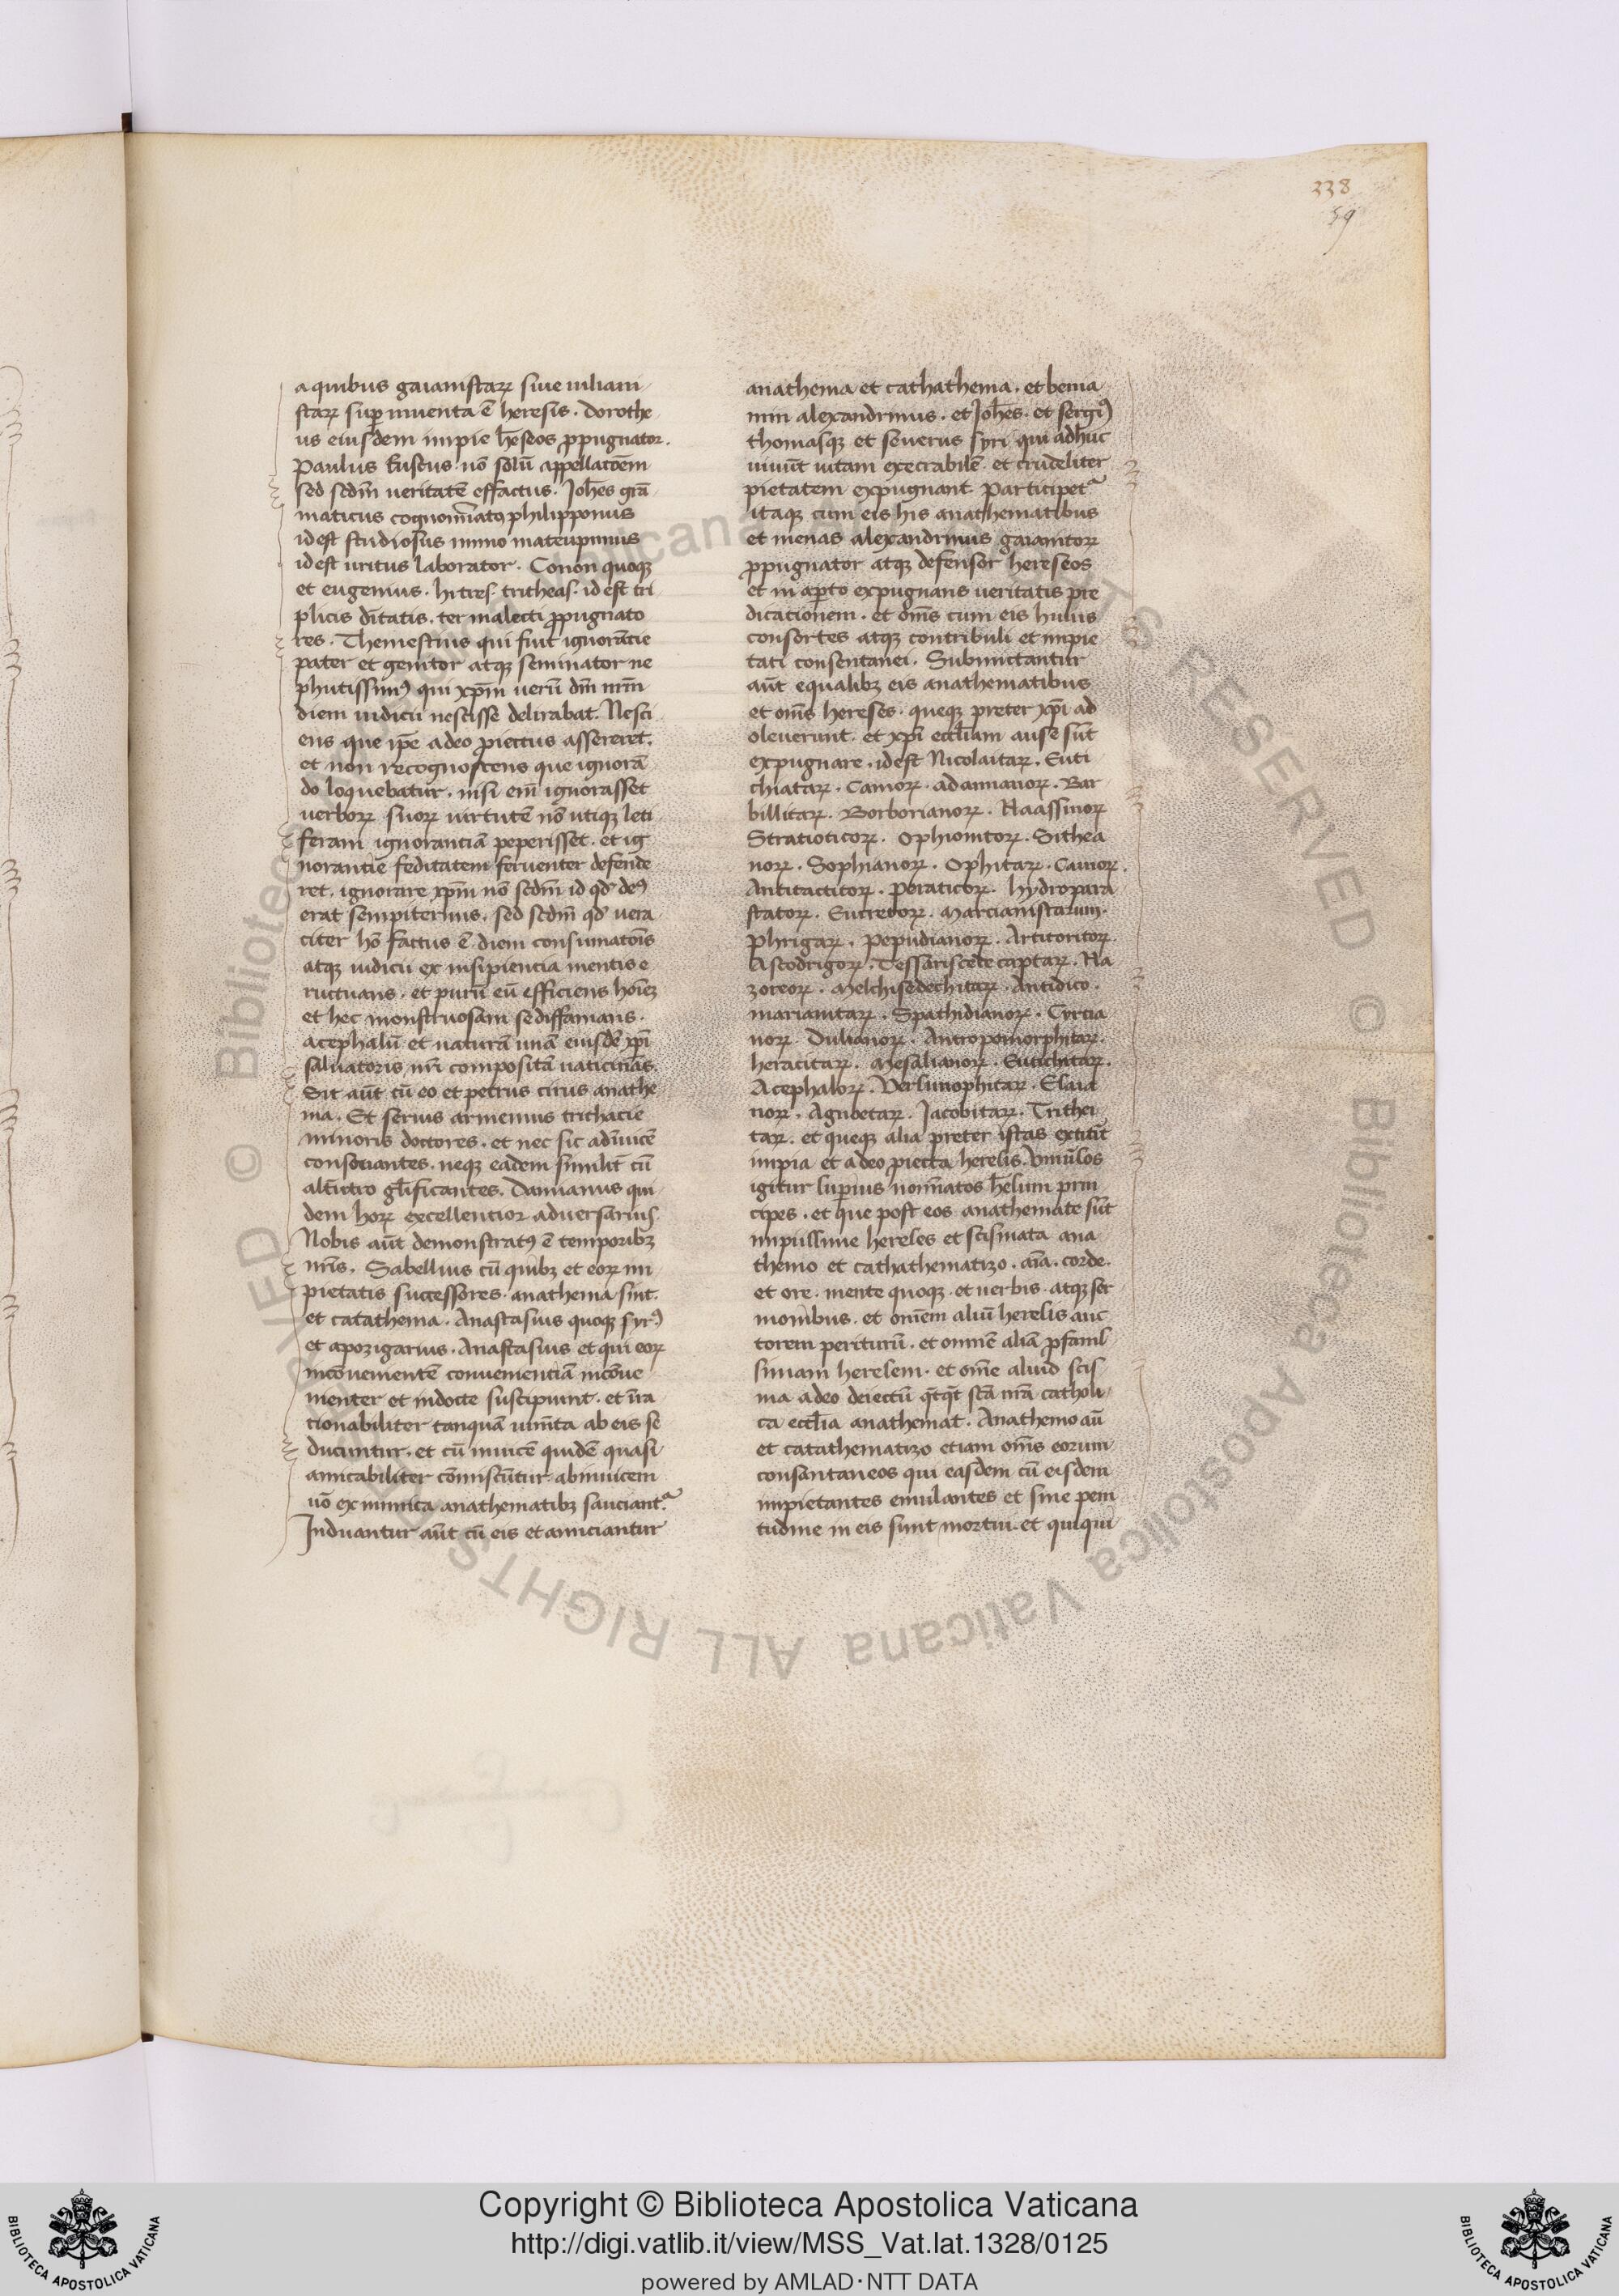 338
59
a quibus gaianistaꝝ siue iuliani
staꝝ suꝑ inuenta ē heresis. dorothe
us eiusdem impie hēseos ꝓpugnator.
Paulus fuscus nō solū appellatōem
sed scdm̄ ueritatē effactus. Joh̄es grā
maticus cognom̄iatꝰ philipponus
id est studiosus immo mateuponus
id est uritus laborator. Conon quoqꝫ
et eugenius. hi tres tritheas. id est tri
plicis dītatis. ter maledcti ꝓpugnato
res. Themestius qui fuit ignorātie
pater et genitor atqꝫ seminator ne
phātissimꝰ qui xp̄m uerū dm̄ nr̄m
diem iudicii nescisse delirabat. Nesci
ens que ip̄e adeo ꝓiectus assereret.
et non recognoscens que ignorā
do loquebatur. nisi em̄ ignorasset
uerborꝝ suorꝝ uirtutē nō utiqꝫ leti
feram ignorantiā peperisset. et ig
norantie feditatem feruenter defende
ret. ignorare xp̄m nō scdm̄ id qđ deꝰ
erat sempiternus. sed scdm̄ qđ uera
citer hō factus ē. diem consumatōis
atqꝫ iudicii ex insipiencia mentis e
ructuans. et purū eū efficiens hoīeꝫ
et hec monstruosam se diffamans.
acephalū et naturā unā eiusdē xp̄i
saluatoris nr̄i compositā uaticinās.
Sit aūt cū eo et petrus cirus anathe
ma. Et serius armenius trithacie
minoris doctores. et nec sic adīuicē
consociantes. neqꝫ eadem similit̄ cū
alt̄utro gl̄ificantes. Damianus qui
dem horꝝ excellentior aduersarius.
Nobis aūt demonstratꝰ ē temporibꝫ
nr̄is. Sabellius cū quibꝫ et eorꝝ im
pietatis successores. anathema sint.
et catathema. Anastasius quoqꝫ syrꝰ
et apozigarius. Anastasius et qui eorꝝ
incōuenientē conuenientiā incōue
nienter et indocte suscipiunt. et irra
tionabiliter tanquā iumēta ab eis se
ducuntur. et cū inuicē quidē quasi
amicabiliter cōmiscūtur abinuicem
uō ex inimica anathematibꝫ sauciantᷣ
Induantur aūt cū eis et amiciantur
anathema et cathathema. et benia
min alexandrinus. et Joh̄es. et sergiꝰ
thomasqꝫ et seuerus syri qui adhuc
uiuūt uitam execrabilē. et crudeliter
pietatem expugnant. Participetᷣ
itaqꝫ cum eis his anathematibus
et menas alexandrinus gaianitorꝝ
ꝓpugnator atqꝫ defensor hereseos
et in aꝑto expugnans ueritatis pre
dicationem. et om̄s cum eis huius
consortes atqꝫ contribuli et impie
tati consentanei. Submictantur
aūt equalibꝫ eis anathematibus
et om̄s hereses. queqꝫ preter xp̄i ad
oleuerunt. et xp̄i eccl̄iam ause sūt
expugnare. id est Nicolaitaꝝ. Euti
chiataꝝ. Cainorꝝ. adamianorꝝ. Bar
billitaꝝ. Borborianorꝝ. Naassinorꝝ
Stratioticorꝝ. Ophionitorꝝ. Sithea
norꝝ. Sophianorꝝ. Ophitaꝝ. Cainorꝝ.
Antitactitorꝝ. Peraticorꝝ. hydropara
statorꝝ. Eucretorꝝ. Marcianistarum.
Phrigaꝝ. Pepudianorꝝ. Artitoritorꝝ.
Ascodrigorꝝ. Tessariscetecaptaꝝ. Na
zoreorꝝ. Melchisedechitaꝝ. Antidico.
marianitaꝝ. Spathidianorꝝ. Cyrtia
norꝝ. Dulianorꝝ. Antropomorphitaꝝ.
heracitaꝝ. Mesalianorꝝ. Eutichitaꝝ.
Acephalorꝝ. Verlunophitaꝝ. Elaia
norꝝ. Agnoetaꝝ. Jacobitaꝝ. Trithei
taꝝ. et queqꝫ alia preter istas extitīt
impia et adeo ꝓiecta heresis. Vniūsos
igitur suꝑius nomīatos hēsium prin
cipes. et que post eos anathemate sūt
impiissime hereses et scismata ana
themo et cathathematizo. aīa. corde.
et ore. mente quoqꝫ. et uerbis. atqꝫ ser
monibus. et omnem aliū heresis auc
torem periturū. et omnē aliā ꝓfanis
simam heresem. et om̄e aliud scis
ma adeo deiectū q̄tq̄t scā nr̄a catholi
ca eccl̄ia anathemat. Anathemo aū
et catathematizo etiam om̄s eorum
consantaneos qui easdem cū eisdem
impietantes emulantes et sine peni
tudine in eis sunt mortui. et qui qui
Copyright © Biblioteca Apostolica Vaticana
http://digi.vatlib.it/view/MSS_Vat.lat.1328/0125
powered by AMLAD·NTT DATA
BIBLIOTECA APOSTOLICA VATICANA
BIBLIOTECA APOSTOLICA VATICANA
© Biblioteca Apostolica Vaticana ALL RIGHTS RESERVED © Biblioteca Apostolica Vaticana ALL RIGHTS RESERVED